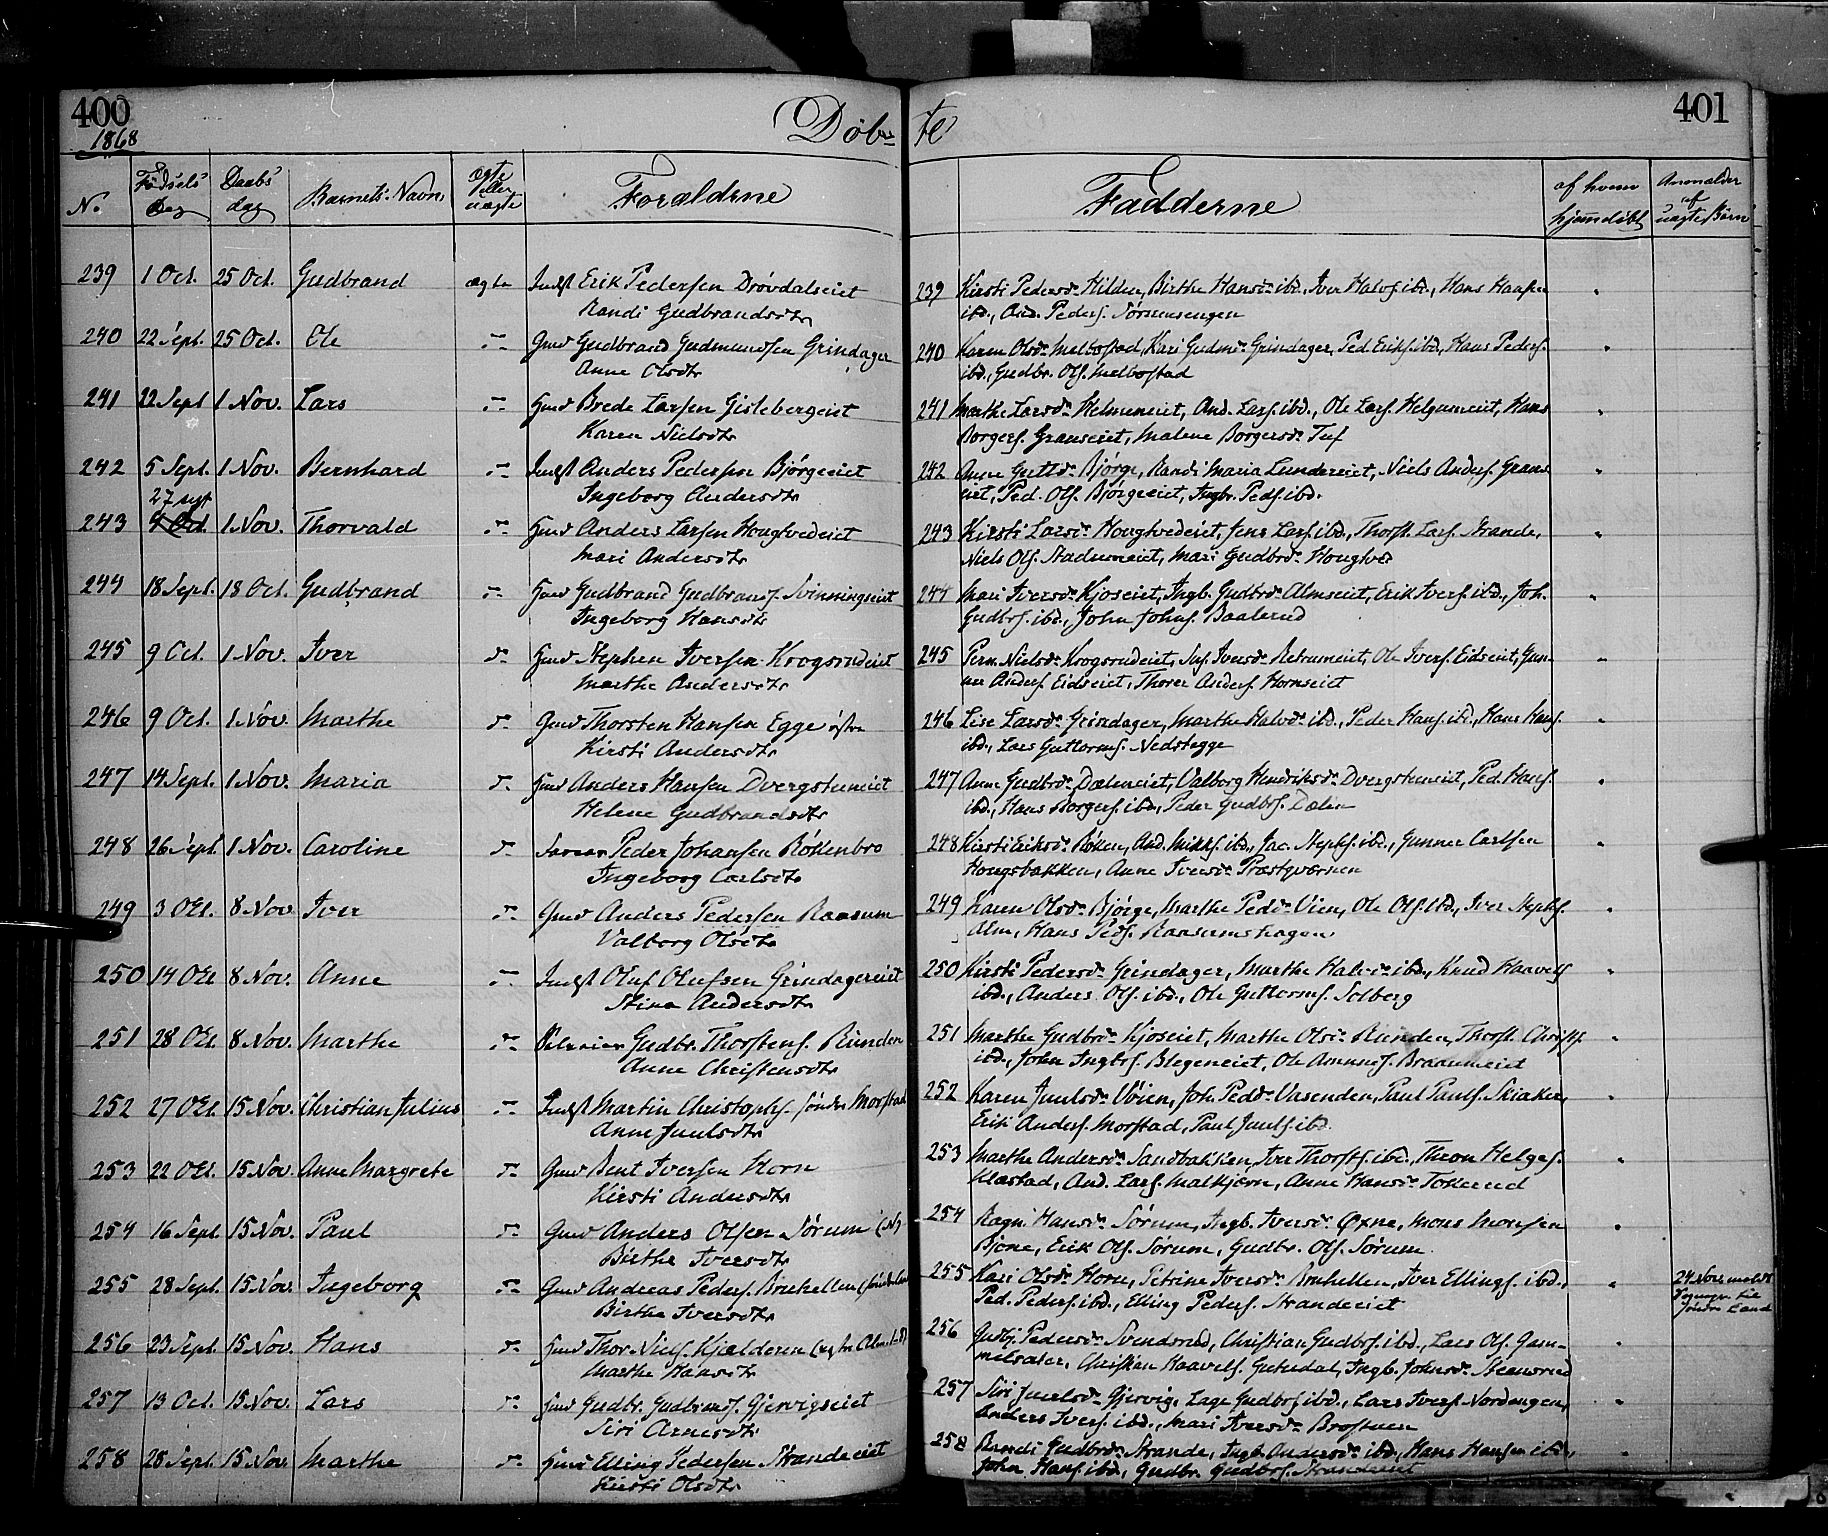 400
1868
Døbte
401
No. Fødsels Dag Daabs dag Barnets Navn Ægte eller uægte Forældrene
Fadderne af hvem hjemdøbt Anmelder af uægte Børn
239 1 Oct. 25 Oct. Gudbrand ægte Indst Erik Pedersen Drövdalseiet
Randi Gudbrandsdtr
240 22 Sept. 25 Oct. Ole Gmd Gudbrand Gudmundsen Grindager
Anne Olsdtr
241 22 Sept 1 Nov. Lars Hmd Brede Larsen Gislebergeiet
Karen Nielsdtr
242 5 Sept. 1 Nov. Bernhard Indst Anders Pedersen Bjørgeeiet
Ingeborg Andersdtr
27 sept
243 4 Oct. 1 Nov. Thorvald Hmd Anders Larsen Hougtvedeiet
Mari Andersdtr
244 18 Sept. 18 Oct. Gudbrand Hmd Gudbrand Gudbrands. Svinningseiet
Ingeborg Hansdtr
245 9 Oct. 1 Nov. Iver Hmd Stephen Iversen Krogsrudeiet
Marthe Andersdtr
246 9 Oct. 1 Nov. Marthe Gmd Thorsten Hansen Egge østre
Kirsti Andersdtr
247 14 Sept. 1 Nov. Maria Hmd Anders Hansen Dvergstuneiet
Helene Gudbrandsdtr
248 26 Sept. 1 Nov. Caroline Peder Johansen Røkenbro
Ingeborg Carlsdtr
249 3 Oct. 8 Nov Iver Gmd Anders Pedersen Raasum
Valborg Olsdtr
250 14 Oct 8 Nov. Anne Indst Oluf Olufsen Grindagereiet
Stina Andersdtr
251 28 Oct. 8 Nov. Marthe Gudbr. Thorstens. Rúnden
Anne Christensdtr
252 27 Oct. 15 Nov. Christian Julius Indst Martin Christophs. søndre Morstad
Anne Juulsdtr
253 22 Oct. 15 Nov. Anne Margrete Gmd Bent Iversen Horn
Kirsti Andersdtr
254 16 Sept. 15 Nov. Paul Gmd Anders Olsen Sørum (N)
Birthe Iversdtr
255 28 Sept. 15 Nov. Ingeborg Gmd Andreas Peders. Bruhellen (søndre Land
Birthe Iversdtr
256 23 Sept. 15 Nov. Hans Hmd Thor Niels. Kjælderen
Marthe Hansdtr
257 13 Oct. 15 Nov. Lars Hmd Gudbr. Gudbrands. Gjervigseiet
Siri Arnesdtr
258 28 Sept. 15 Nov. Marthe Hmd Elling Pedersen Strandeeiet
Kirsti Olsdtr
239 Kirsti Pedersdr Hilden, Birthe Hansdr ibd., Iver Halvs. ibd., Hans Hansen
ibd., And. Peders. Sørumsengen
240 Karen Olsdr Melbostad, Kari Gudmdr Grindager, Ped. Eriks. ibd., Hans Peders.
ibd., Gudbr. Ols. Melbostad
241 Marthe Larsdr Helmeneiet, And. Lars. ibd., Ole Lars. Helgumeiet, Hans
Borgers. Granseiet, Malene Borgersdr Tuf
242 Anne Guttdr Bjørge, Randi Maria Lundereiet, Niels Anders. Grans
eiet, Ped. Ols. Bjørgeeiet, Ingbr. Peds. ibd.
243 Kirsti Larsdr Hougtvedeiet, Jens Lars. ibd., Thorst. Lars. Strande,
Niels Ols. Stadumeiet, Mari Gudbrdr Hougtved
244 Mari Iversdr Kjoseiet, Ingb. Gudbrdr Almseiet, Erik Ivers. ibd., Joh.
Gudbrs. ibd., John Johns. Baalerud
245 Pern. Nielsdr Krogsrudeiet, Iversdr Retrumeiet, Ole Ivers. Eidseiet, Gun-
ner Anders. Eidseiet, Thorer Anders. Hornseiet
246 Lise Larsdr Grindager, Marthe Halvdr ibd., Peder Hans. ibd., Hans Hans.
ibd., Lars Guttorms. Nedstegge
247 Anne Gudbrdr Dæleneiet, Valborg Henriksdr Dvergstuneiet, Ped. Hans.
ibd., Hans Borgers. ibd., Peder Gudbrs. Dælen
248 Kirsti Eriksdr Røken, And. Mikks. ibd., Jac. Stephs. ibd., Gunner Carlsen
Hougsbakken, Anne Iversdr Præstqværnen
249 Karen Olsdr Bjørge, Marthe Peddr Vien, Ole Ols. ibd., Iver Stephs.
Alm, Hans Peds. Raasumshagen
250 Kirsti Pedersdr Grindager, Marthe Halvdr ibd., Knud Haavels
ibd., Anders Ols. ibd., Ole Guttorms. Solberg
251 Marthe Gudbrdr Kjoseiet, Marthe Olsdr Runden, Thorst. Christs.
ibd., John Ingbrs. Blegeneiet, Ole Amunds. Braanmeiet
252 Karen Juulsdr Vøien, Joh. Peddr Vasenden, Paul Pauls. Skiaker,
Erik Anders. Morstad, Paul Juuls. ibd.
253 Marthe Andersdr Sandbakken, Iver Thorsts. ibd., Thron Helges.
Klæstad, And. Lars. Malkjern, Anne Hansdr Tokerud
254 Ragn. Hansdr Sørum, Ingb. Iversdr Øxne, Mons Monsen
Bjone, Erik Ols. Sørum, Gudbr. Ols. Sørum
255 Kari Olsdr Horn, Petrine Iversdr Bruhellen, Iver Ellings. ibd.,
Ped. Peders. ibd., Elling Peders. Strandeeiet
24 Nov meldt
til
søndre Land
256 Gubj. Pedersdr Svendsrud, Christian Gudbrs. ibd., Lars Ols. Gam-
melsæter, Christian Haavels. Gutudal, Ingb. Johnsdr Steensrud
257 Siri Juulsdr Gjervig, Lage Gudbrs. ibd., Lars Ivers. Nordengen,
Anders Ivers. ibd., Mari Iversdr Brostuen
258 Randi Gudbrdr Strande, Ingb. Andersdr ibd., Hans Hansen ibd.,
John Hans. ibd., Gudbr. Gudbrs. Strandeeiet